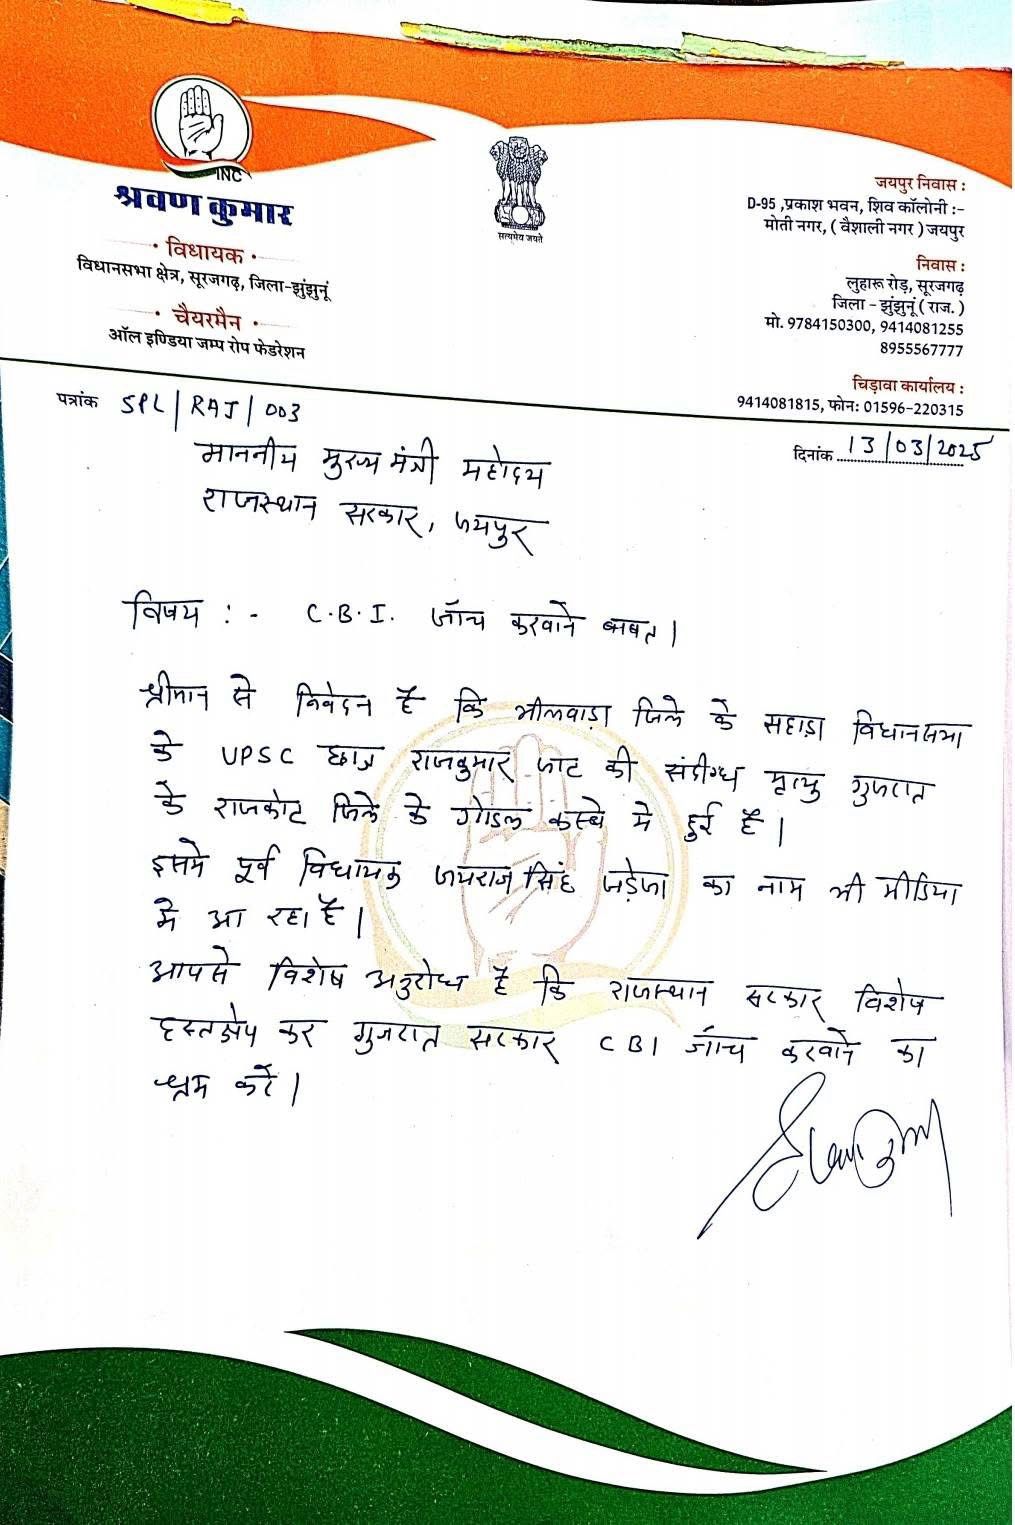 INC
श्रवण कुमार
• विधायक •
विधानसभा क्षेत्र, सूरजगढ़, जिला-झुंझुनूं
• चैयरमैन •
ऑल इण्डिया जम्प रोप फेडरेशन
सत्यमेव जयते
जयपुर निवास :
D-95 ,प्रकाश भवन, शिव कॉलोनी :-
मोती नगर, ( वैशाली नगर ) जयपुर
निवास :
लुहारू रोड़, सूरजगढ़
जिला - झुंझुनूं ( राज. )
मो. 9784150300, 9414081255
8955567777
चिड़ावा कार्यालय :
9414081815, फोन: 01596-220315
पत्रांक SPL/RAJ/003
दिनांक 13/03/2025
माननीय मुख्य मंत्री महोदय
राजस्थान सरकार, जयपुर
विषय :- C.B.I. जाँच करवाने बाबत।
श्रीमान से निवेदन है कि भीलवाड़ा जिले के सहाड़ा विधानसभा
के UPSC छात्र राजकुमार जाट की संदीग्ध मृत्यु गुजरात
के राजकोट जिले के गोंडल कस्बे मे हुई है।
इसमे पूर्व विधायक जयराज सिंह जड़ेजा का नाम भी मीडिया
मे आ रहा है।
आपसे विशेष अनुरोध है कि राजस्थान सरकार विशेष
हस्तक्षेप कर गुजरात सरकार CBI जाँच करवाने का
श्रम करें।